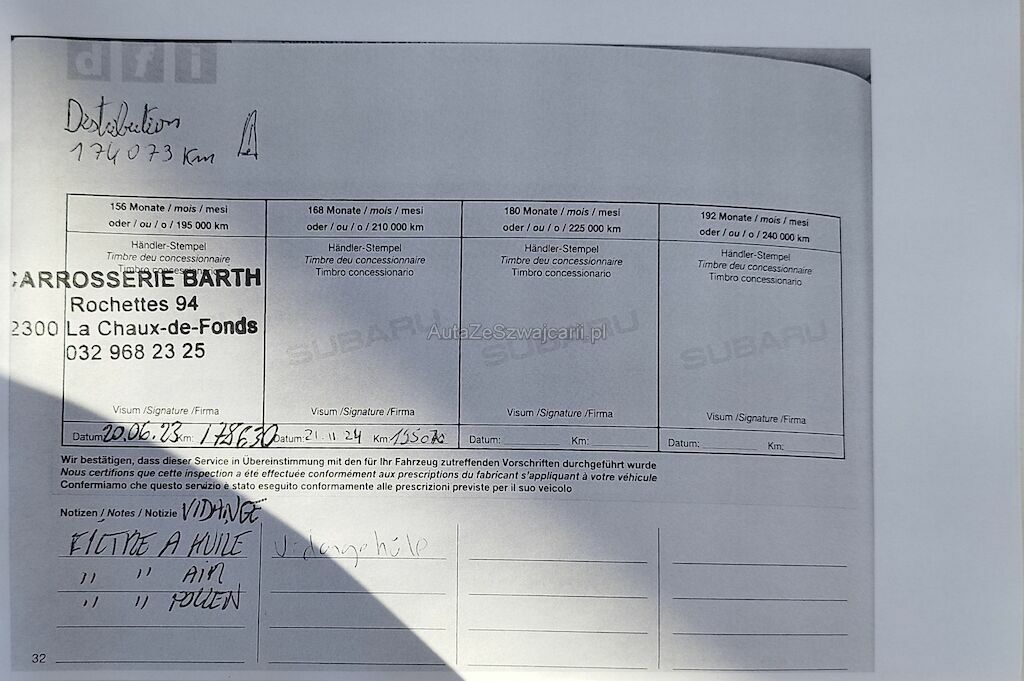 dfi
Distribution
174 073 Km
156 Monate / mois / mesi
oder / ou / o / 195 000 km
Händler-Stempel
Timbre deu concessionnaire
Timbro concessionario
CARROSSERIE BARTH
Rochettes 94
2300 La Chaux-de-Fonds
032 968 23 25
Visum /Signature /Firma
Datum: 20.06.23 Km: 178630
168 Monate / mois / mesi
oder / ou / o / 210 000 km
Händler-Stempel
Timbre deu concessionnaire
Timbro concessionario
SUBARU
Visum /Signature /Firma
Datum: 21.11.24 Km:
180 Monate / mois / mesi
oder / ou / o / 225 000 km
Händler-Stempel
Timbre deu concessionnaire
Timbro concessionario
SUBARU
Visum /Signature /Firma
Datum: Km:
192 Monate / mois / mesi
oder / ou / o / 240 000 km
Händler-Stempel
Timbre deu concessionnaire
Timbro concessionario
SUBARU
Visum /Signature /Firma
Datum: Km:
AutaZeSzwajcarii.pl
Wir bestätigen, dass dieser Service in Übereinstimmung mit den für Ihr Fahrzeug zutreffenden Vorschriften durchgeführt wurde
Nous certifions que cette inspection a été effectuée conformément aux prescriptions du fabricant s'appliquant à votre véhicule
Confermiamo che questo servizio è stato eseguito conformamente alle prescrizioni previste per il suo veicolo
Notizen / Notes / Notizie VIDANGE
FILTRE A HUILE
" " AIR
" " POLLEN
32